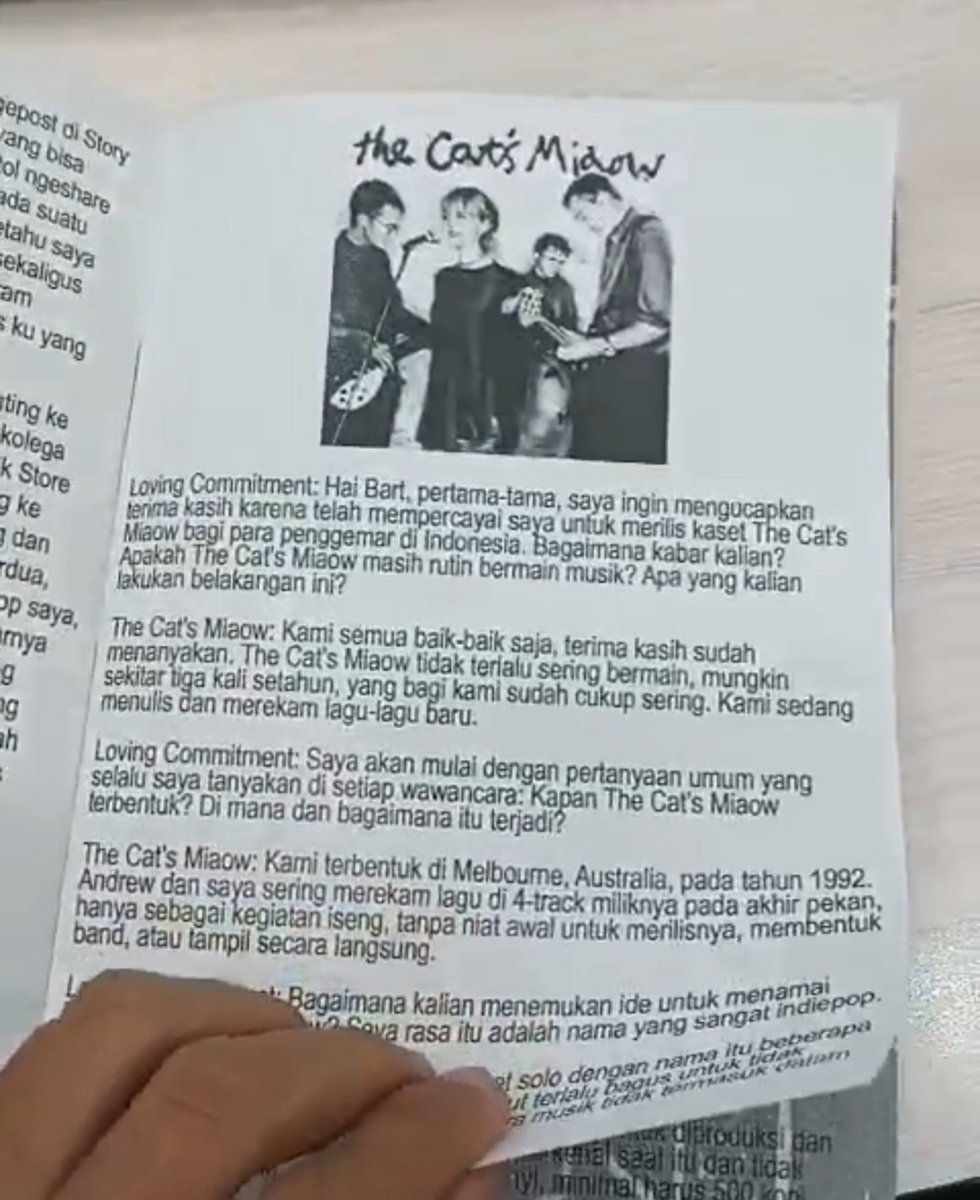 gepost di Story
yang bisa
ngeshare
ada suatu
saya
sekaligus
ku yang
ke
kolega
Store
ke
dan
saya,
the Cat's Miaow
Loving Commitment: Hai Bart, pertama-tama, saya ingin mengucapkan
terima kasih karena telah mempercayai saya untuk merilis kaset The Cat's
Miaow bagi para penggemar di Indonesia. Bagaimana kabar kalian?
Apakah The Cat's Miaow masih rutin bermain musik? Apa yang kalian
lakukan belakangan ini?
The Cat's Miaow: Kami semua baik-baik saja, terima kasih sudah
menanyakan. The Cat's Miaow tidak terlalu sering bermain, mungkin
sekitar tiga kali setahun, yang bagi kami sudah cukup sering. Kami sedang
menulis dan merekam lagu-lagu baru.
Loving Commitment: Saya akan mulai dengan pertanyaan umum yang
selalu saya tanyakan di setiap wawancara: Kapan The Cat's Miaow
terbentuk? Di mana dan bagaimana itu terjadi?
The Cat's Miaow: Kami terbentuk di Melbourne, Australia, pada tahun 1992.
Andrew dan saya sering merekam lagu di 4-track miliknya pada akhir pekan,
hanya sebagai kegiatan iseng, tanpa niat awal untuk merilisnya, membentuk
band, atau tampil secara langsung.
Bagaimana kalian menemukan ide untuk menamai
Saya rasa itu adalah nama yang sangat indiepop.
solo dengan nama itu beberapa
terlalu bagus untuk tidak
musik tidak termasuk dalam
diproduksi dan
saat itu dan tidak
minimal harus 500